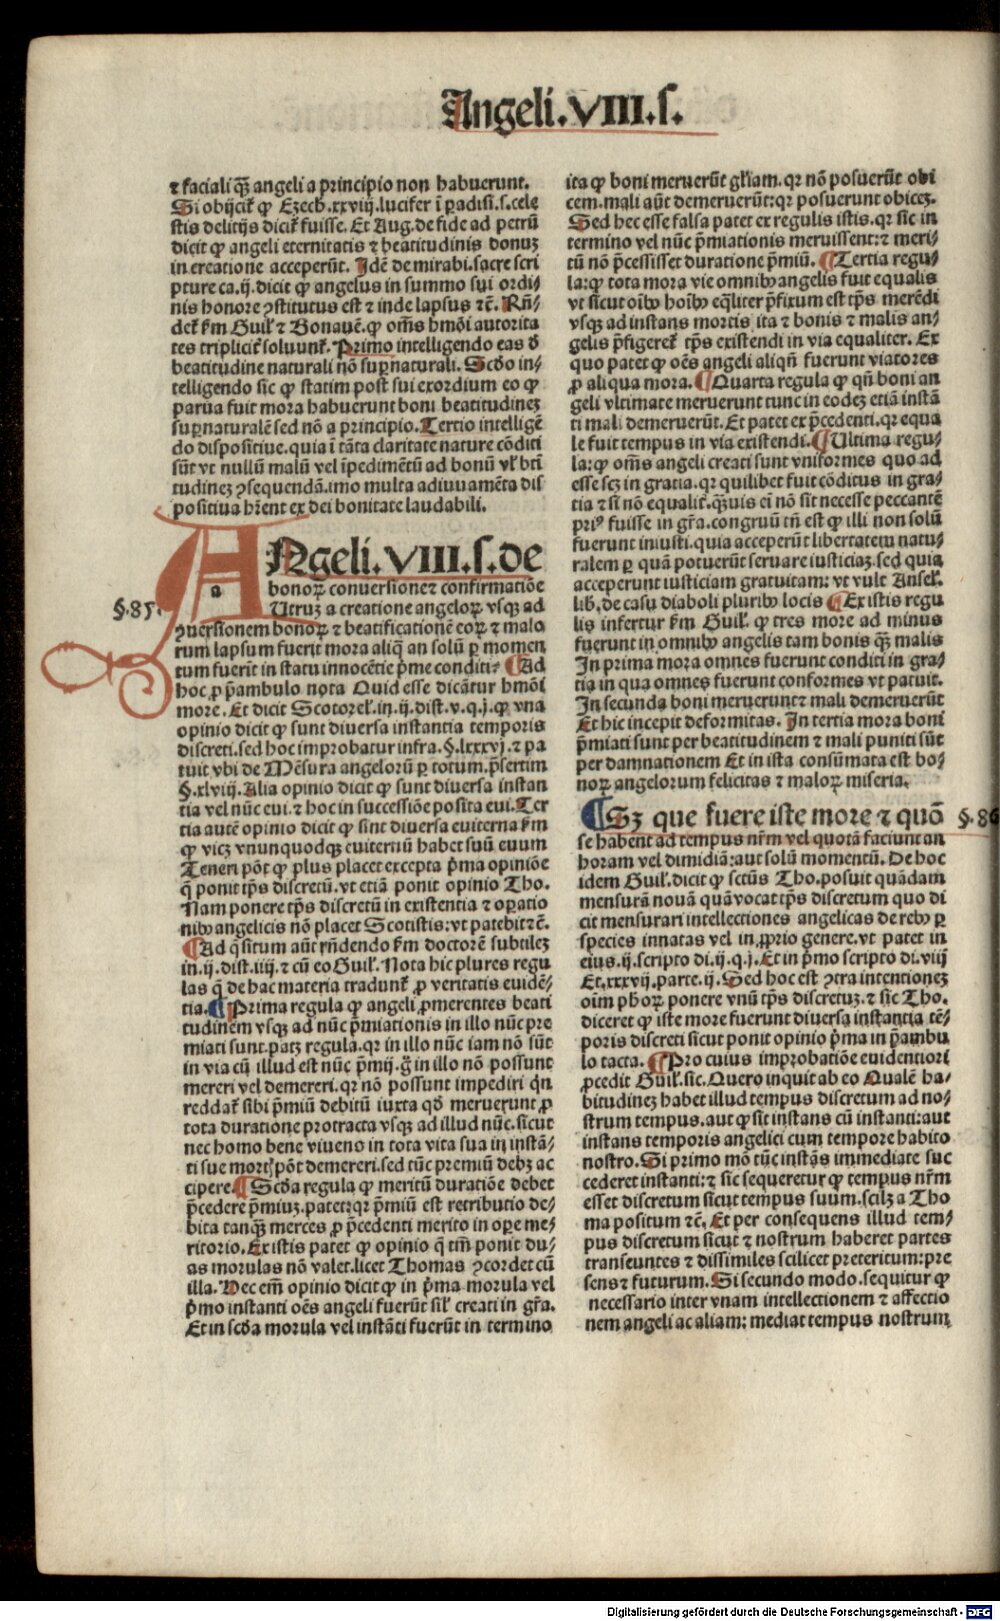 Angeli.VIII.s.
⁊ faciali qȝ angeli a principio non habuerunt.
Si obijcit̃ ꝙ Ezech.xxviij.lucifer ĩ ꝑadisi.s.cele
stis delitijs dicit̃ fuisse. Et Aug.de fide ad petrũ
dicit ꝙ angeli eternitatis ⁊ beatitudinis donuȝ
in creatione acceperũt. Idẽ de mirabi.sacre scri
pture ca.ij.dicit ꝙ angelus in summo sui ordi/
nis honore ꝯstitutus est ⁊ inde lapsus ⁊c̃. Rñ/
det̃ ẜm Guil̃ ⁊ Bonauẽ.ꝙ om̃s hmõi autorita
tes triplicit̃ soluunt̃. Primo intelligendo eas ď
beatitudine naturali nõ suꝑnaturali. Scďo in/
telligendo sic ꝙ statim post sui exordium eo ꝙ
parua fuit mora habuerunt boni beatitudineȝ
suꝑnaturalẽ sed nõ a principio. Tertio intelligẽ
do dispositiue.quia ĩ tãta claritate nature cõditi
sũt vt nullũ malũ vel ĩpedimẽtũ ad bonũ vl̃ btĩ
tudineȝ ꝯsequendã.imo multa adiuuamẽta dis
positiua hr̃ent ex dei bonitate laudabili.
ANgeli.VIII.s.de
a
bonoꝝ conuersione ⁊ confirmatiõe
§.85.
Utruȝ a creatione angeloꝝ vsqȝ ad
ꝯuersionem bonoꝝ ⁊ beatificationẽ eoꝝ ⁊ malo
rum lapsum fuerit mora aliq̃ an solũ ꝑ momen
tum fuerit in statu innocẽtie p̃me conditi? ¶Ad
hoc ꝓ p̃ambulo nota Quid esse dicãtur hmõi
more. Et dicit Scotorel̃.in.ij.dist.v.q.j.ꝙ vna
opinio dicit ꝙ sunt diuersa instantia temporis
discreti.sed hoc improbatur infra.§.lxxxvj.⁊ pa
tuit vbi de Mẽsura angelorũ ꝑ totum.p̃sertim
§.xlviij.Alia opinio dicit ꝙ sunt diuersa instan
tia vel nũc eui.⁊ hoc in successiõe posita eui.Ter
tia autẽ opinio dicit ꝙ sint diuersa euiterna ẜm
ꝙ vicȝ vnunquodqȝ euiternũ habet suũ euum
Teneri põt ꝙ plus placet excepta p̃ma opiniõe
q̃ ponit tp̃s discretũ.vt etiã ponit opinio Tho.
Nam ponere tp̃s discretũ in existentia ⁊ oꝑatio
nibꝰ angelicis nõ placet Scotistis:vt patebit ⁊c̃.
¶Ad q̃situm aũt rñdendo ẜm doctorẽ subtileȝ
in.ij.dist.iiij.⁊ cũ eo Guil̃. Nota hic plures regu
las q̃ de hac materia tradunt̃ ꝓ veritatis euidẽ/
tia. ¶Prima regula ꝙ angeli ꝓmerentes beati
tudinem vsqȝ ad nũc p̃miationis in illo nũc pre
miati sunt.patȝ regula.qr in illo nũc iam nõ sũt
in via cũ illud est nũc p̃mij.g̃ in illo nõ possunt
mereri vel demereri.qr nõ possunt impediri q̇n
reddat̃ sibi p̃miũ debitũ iuxta qď meruerunt ꝓ
tota duratione protracta vsqȝ ad illud nũc.sicut
nec homo bene viuens in tota vita sua in instã/
ti sue mortꝭ põt demereri.sed tũc premiũ debȝ ac
cipere. ¶Scďa regula ꝙ meritũ duratiõe debet
p̃cedere p̃miuȝ.patet:qr p̃miũ est retributio de/
bita tanqȝ merces ꝓ p̃cedenti merito in oꝑe me/
ritorio.Ex istis patet ꝙ opinio q̃ tm̃ ponit du/
as morulas nõ valet.licet Thomas ꝯcordet cũ
illa. Nec em̃ opinio dicit ꝙ in p̃ma morula vel
p̃mo instanti oẽs angeli fuerũt sil̃ creati in gr̃a.
Et in scďa morula vel instãti fuerũt in termino
ita ꝙ boni meruerũt gl̃iam.qr nõ posuerũt obi
cem.mali aũt demeruerũt:qr posuerunt obiceȝ.
Sed hec esse falsa patet ex regulis istis.qr sic in
termino vel nũc p̃miationis meruissent:⁊ meri/
tũ nõ p̃cessisset duratione p̃miũ. ¶Tertia regu/
la:ꝙ tota mora vie omnibꝰ angelis fuit equalis
vt sicut oĩbꝰ hoĩbꝰ eq̃liter p̃fixum est tp̃s merẽdi
vsqȝ ad instans mortis ita ⁊ bonis ⁊ malis an/
gelis p̃figeret̃ tp̃s existendi in via equaliter. Ex
quo patet ꝙ oẽs angeli aliqñ fuerunt viatores
ꝓ aliqua mora. ¶Quarta regula ꝙ qñ boni an
geli vltimate meruerunt tunc in eodeȝ etiã instã
ti mali demeruerũt. Et patet ex p̃cedenti.qr equa
le fuit tempus in via existendi. ¶Ultima regu/
la:ꝙ om̃s angeli creati sunt vniformes quo ad
esse scȝ in gratia.qr quilibet fuit cõditus in gra/
tia ⁊ si nõ equalit̃.qȝuis eĩ nõ sit necesse peccantẽ
priꝰ fuisse in gr̃a.congruũ tñ est ꝙ illi non solũ
fuerunt iniusti.quia acceperũt libertatem natu/
ralem ꝑ quã potuerũt seruare iusticiaȝ.sed quia
acceperunt iusticiam gratuitam: vt vult Ansel̃.
lib.de casu diaboli pluribꝰ locis ¶Ex istis regu
lis infertur ẜm Guil̃.ꝙ tres more ad minus
fuerunt in omnibꝰ angelis tam bonis qȝ malis
In prima mora omnes fuerunt conditi in gra/
tia in qua omnes fuerunt conformes vt patuit.
In secunda boni meruerunt ⁊ mali demeruerũt
Et hic incepit deformitas. In tertia mora boni
p̃miati sunt per beatitudinem ⁊ mali puniti sũt
per damnationem Et in ista consũmata est bo/
noꝝ angelorum felicitas ⁊ maloꝝ miseria.
¶Sȝ que fuere iste more ⁊ quõ
§.86
se habent ad tempus nr̃m vel quotã faciunt an
horam vel dimidiã:aut solũ momentũ. De hoc
idem Guil̃.dicit ꝙ sctũs Tho.posuit quãdam
mensurã nouã quã vocat tp̃s discretum quo di
cit mensurari intellectiones angelicas de rebꝰ ꝑ
species innatas vel in ꝓprio genere.vt patet in
eius.ij.scripto di.ij.q.j.Et in p̃mo scripto di.viij
Et.xxxvij.parte.ij. Sed hoc est ꝯtra intentioneȝ
oĩm ph̃oꝝ ponere vnũ tp̃s discretuȝ.⁊ sic Tho.
diceret ꝙ iste more fuerunt diuersa instantia tẽ/
poris discreti sicut ponit opinio p̃ma in p̃ambu
lo tacta. ¶Pro cuius improbatiõe euidentiori
ꝓcedit Guil̃.sic.Quero inquit ab eo Qualẽ ha/
bitudineȝ habet illud tempus discretum ad no/
strum tempus.aut ꝙ sit instans cũ instanti:aut
instans temporis angelici cum tempore habito
nostro. Si primo mõ tũc instãs immediate suc
cederet instanti:⁊ sic sequeretur ꝙ tempus nr̃m
esset discretum sicut tempus suum.scilȝ a Tho
ma positum ⁊c̃. Et per consequens illud tem/
pus discretum sicut ⁊ nostrum haberet partes
transeuntes ⁊ dissimiles scilicet preteritum:pre
sens ⁊ futurum. Si secundo modo.sequitur ꝙ
necessario inter vnam intellectionem ⁊ affectio
nem angeli ac aliam: mediat tempus nostrum
Digitalisierung gefördert durch die Deutsche Forschungsgemeinschaft - DFG